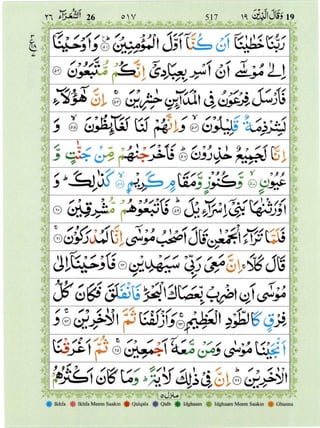 ٢٦ الشُّعَرَآء 26 ٥١٧ 517 ١٩ وَقَالَ الَّذِيْنَ 19
رَبُّنَا خَطٰيٰنَاۤ اَنْ كُنَّاۤ اَوَّلَ الْمُؤْمِنِيْنَ ﴿٥١﴾ وَاَوْحَيْنَاۤ
اِلٰى مُوْسٰۤى اَنْ اَسْرِ بِعِبَادِىْۤ اِنَّكُمْ مُّتَّبَعُوْنَ ﴿٥٢﴾
فَاَرْسَلَ فِرْعَوْنُ فِى الْمَدَآئِنِ حٰشِرِيْنَ ﴿٥٣﴾ اِنَّ هٰۤؤُلَآءِ
لَشِرْذِمَةٌ قَلِيْلُوْنَ ﴿٥٤﴾ وَاِنَّهُمْ لَنَا لَغَآئِظُوْنَ ﴿٥٥﴾ وَ
اِنَّا لَجَمِيْعٌ حٰذِرُوْنَ ﴿٥٦﴾ فَاَخْرَجْنٰهُمْ مِّنْ جَنّٰتٍ وَّ
عُيُوْنٍ ﴿٥٧﴾ وَّكُنُوْزٍ وَّمَقَامٍ كَرِيْمٍ ﴿٥٨﴾ كَذٰلِكَ ؕ وَ
اَوْرَثْنٰهَا بَنِىْۤ اِسْرَآءِيْلَ ﴿٥٩﴾ فَاَتْبَعُوْهُمْ مُّشْرِقِيْنَ ﴿٦٠﴾
فَلَمَّا تَرَآءَ الْجَمْعٰنِ قَالَ اَصْحٰبُ مُوْسٰۤى اِنَّا لَمُدْرَكُوْنَ ﴿٦١﴾
قَالَ كَلَّا ۚ اِنَّ مَعِىَ رَبِّىْ سَيَهْدِيْنِ ﴿٦٢﴾ فَاَوْحَيْنَاۤ اِلٰى
مُوْسٰۤى اَنِ اضْرِبْ بِّعَصَاكَ الْبَحْرَ ؕ فَانْفَلَقَ فَكَانَ كُلُّ
فِرْقٍ كَالطَّوْدِ الْعَظِيْمِ ﴿٦٣﴾ وَاَزْلَفْنَا ثَمَّ الْاٰخَرِيْنَ ﴿٦٤﴾ وَ
اَنْجَيْنَا مُوْسٰى وَمَنْ مَّعَهٗۤ اَجْمَعِيْنَ ﴿٦٥﴾ ثُمَّ اَغْرَقْنَا
الْاٰخَرِيْنَ ﴿٦٦﴾ اِنَّ فِىْ ذٰلِكَ لَاٰيَةً ؕ وَمَا كَانَ اَكْثَرُهُمْ
منزل ٥
Ikhfa Ikhfa Meem Saakin Qalqala Qalb Idghaam Idghaam Meem Saakin Ghunna